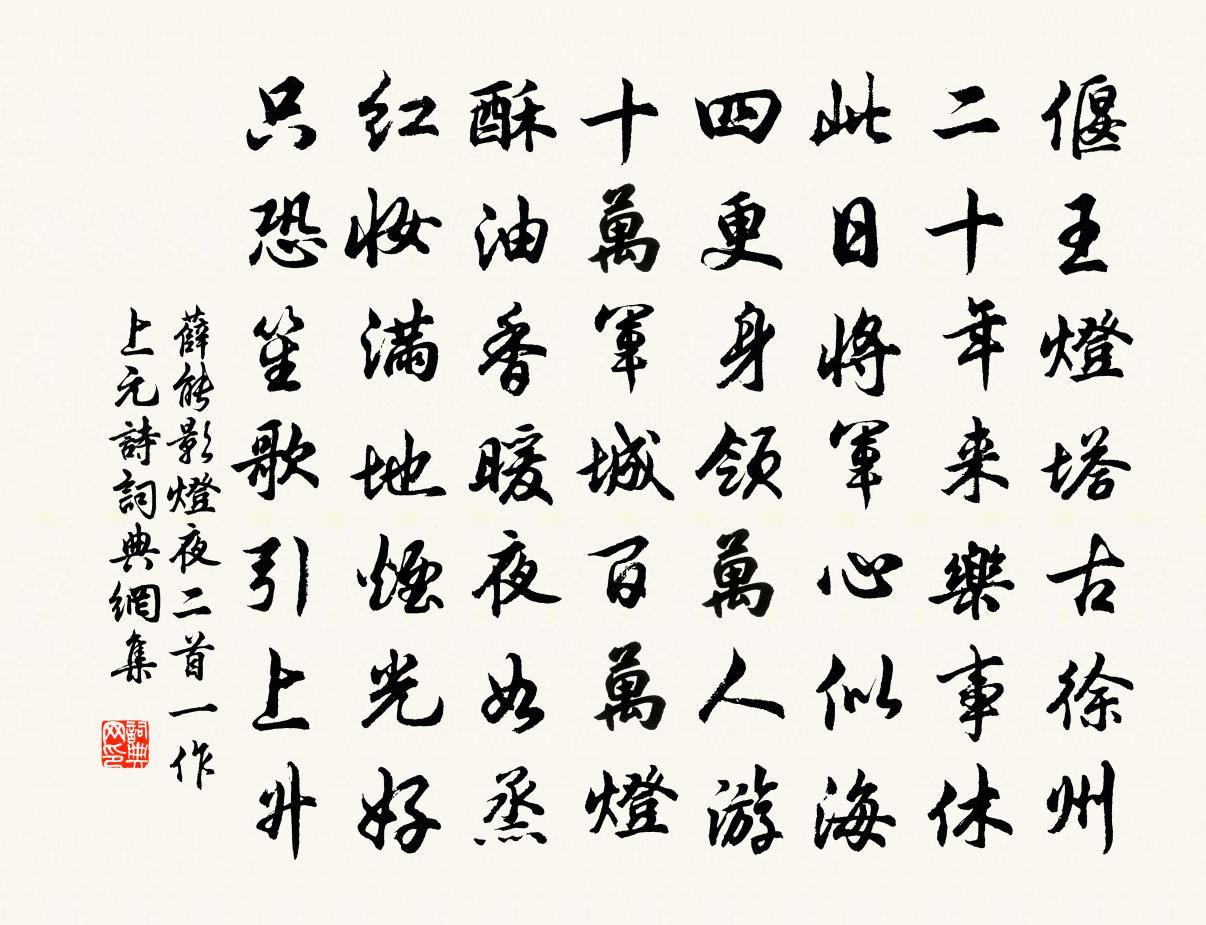 偃王燈塔古徐州
二十年来樂事休
此日將軍心似海
四更身領萬人游
十萬軍城百萬燈
酥油香暖夜如烝
红妝滿地煙光好
只恐笙歌引上升
薛能影燈夜二首一作
上元詩詞典網集
詞典网印